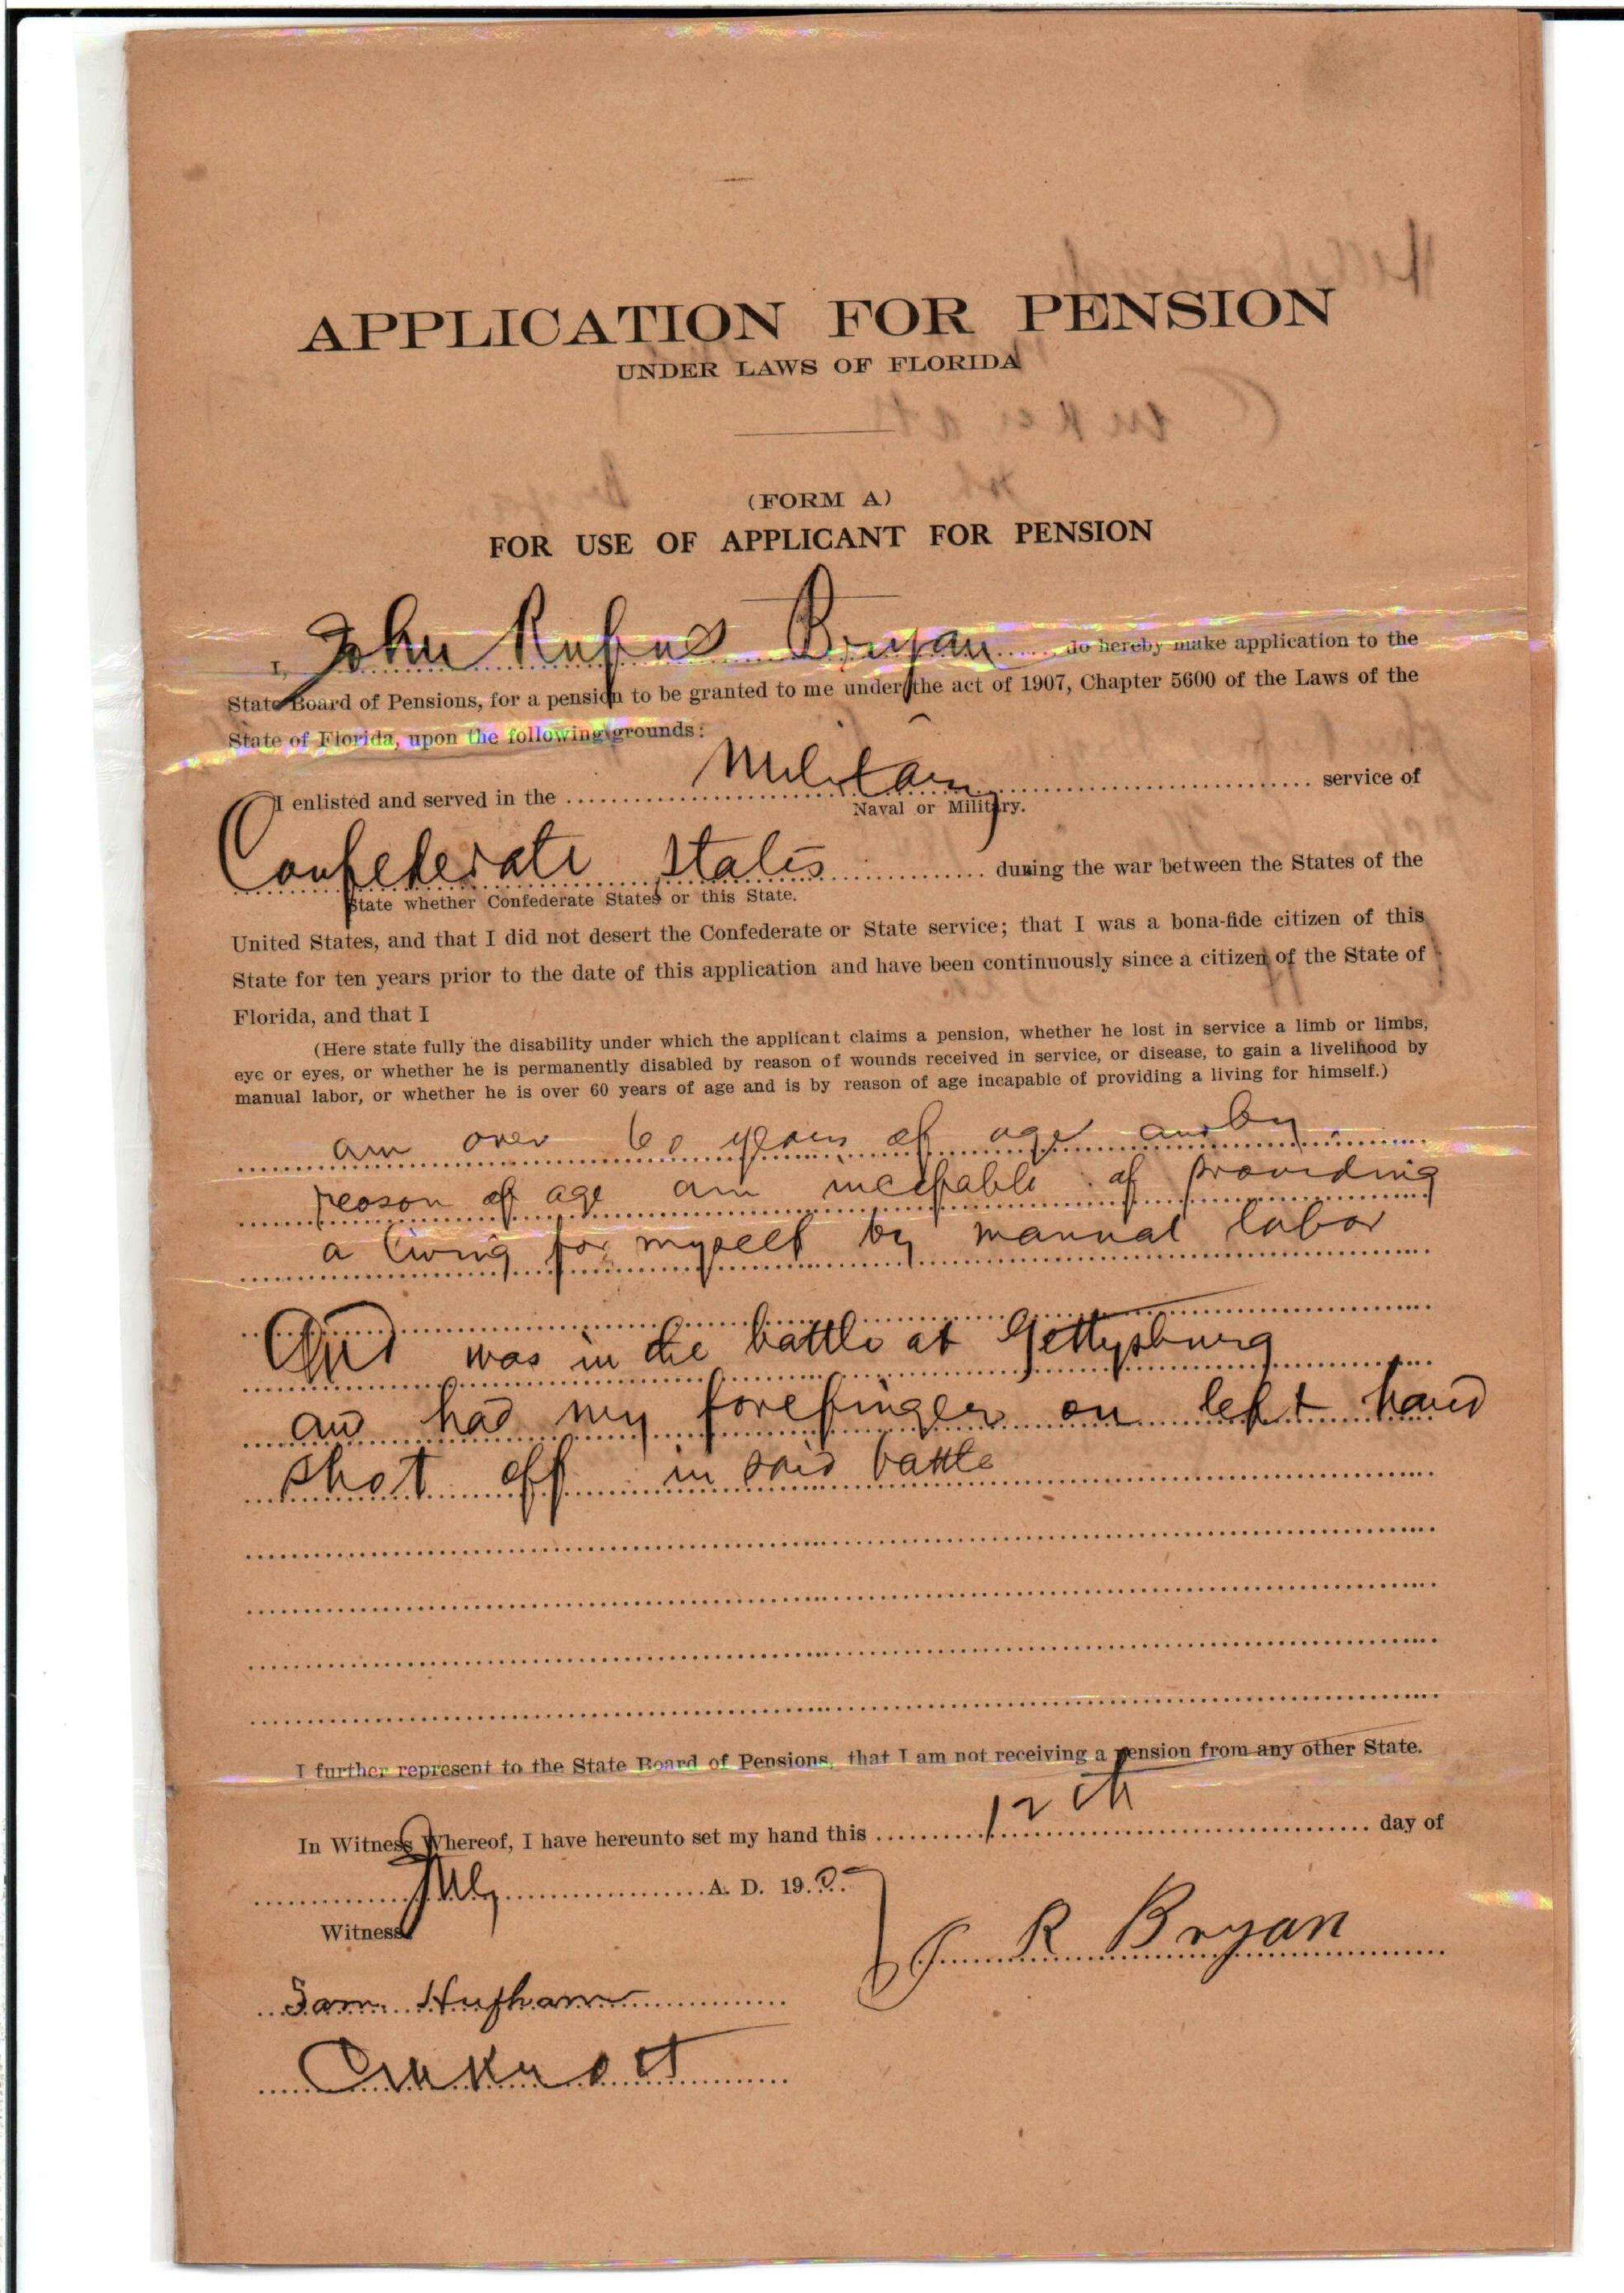 APPLICATION FOR PENSION
UNDER LAWS OF FLORIDA
(FORM A)
FOR USE OF APPLICANT FOR PENSION
I, John Rufus Bryan do hereby make application to the
State Board of Pensions, for a pension to be granted to me under the act of 1907, Chapter 5600 of the Laws of the
State of Florida, upon the following grounds:
I enlisted and served in the Military service of
Naval or Military.
Confederate States during the war between the States of the
State whether Confederate States or this State.
United States, and that I did not desert the Confederate or State service; that I was a bona-fide citizen of this
State for ten years prior to the date of this application and have been continuously since a citizen of the State of
Florida, and that I
(Here state fully the disability under which the applicant claims a pension, whether he lost in service a limb or limbs,
eye or eyes, or whether he is permanently disabled by reason of wounds received in service, or disease, to gain a livelihood by
manual labor, or whether he is over 60 years of age and is by reason of age incapable of providing a living for himself.)
am over 60 years of age and by
reason of age am incapable of providing
a living for myself by manual labor
And was in the battle at Gettysburg
and had my forefinger on left hand
shot off in said battle
I further represent to the State Board of Pensions, that I am not receiving a pension from any other State.
In Witness Whereof, I have hereunto set my hand this 12th day of
July A. D. 190
Witness
J R Bryan
Sam Hufham